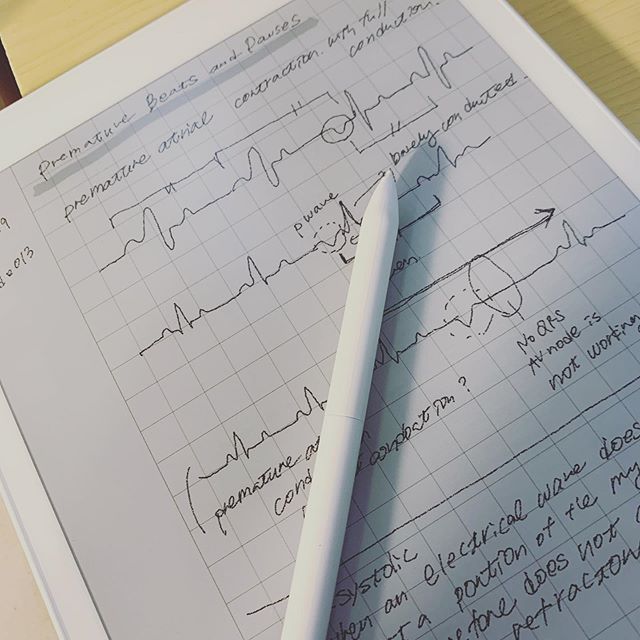 Premature Beats and Pauses
premature atrial contraction with full
conduction.
barely conducted.
P wave
No QRS
AV node is
not working
premature
conduction?
systolic
when an electrical wave does
a portion of the my
tone does not
retraction